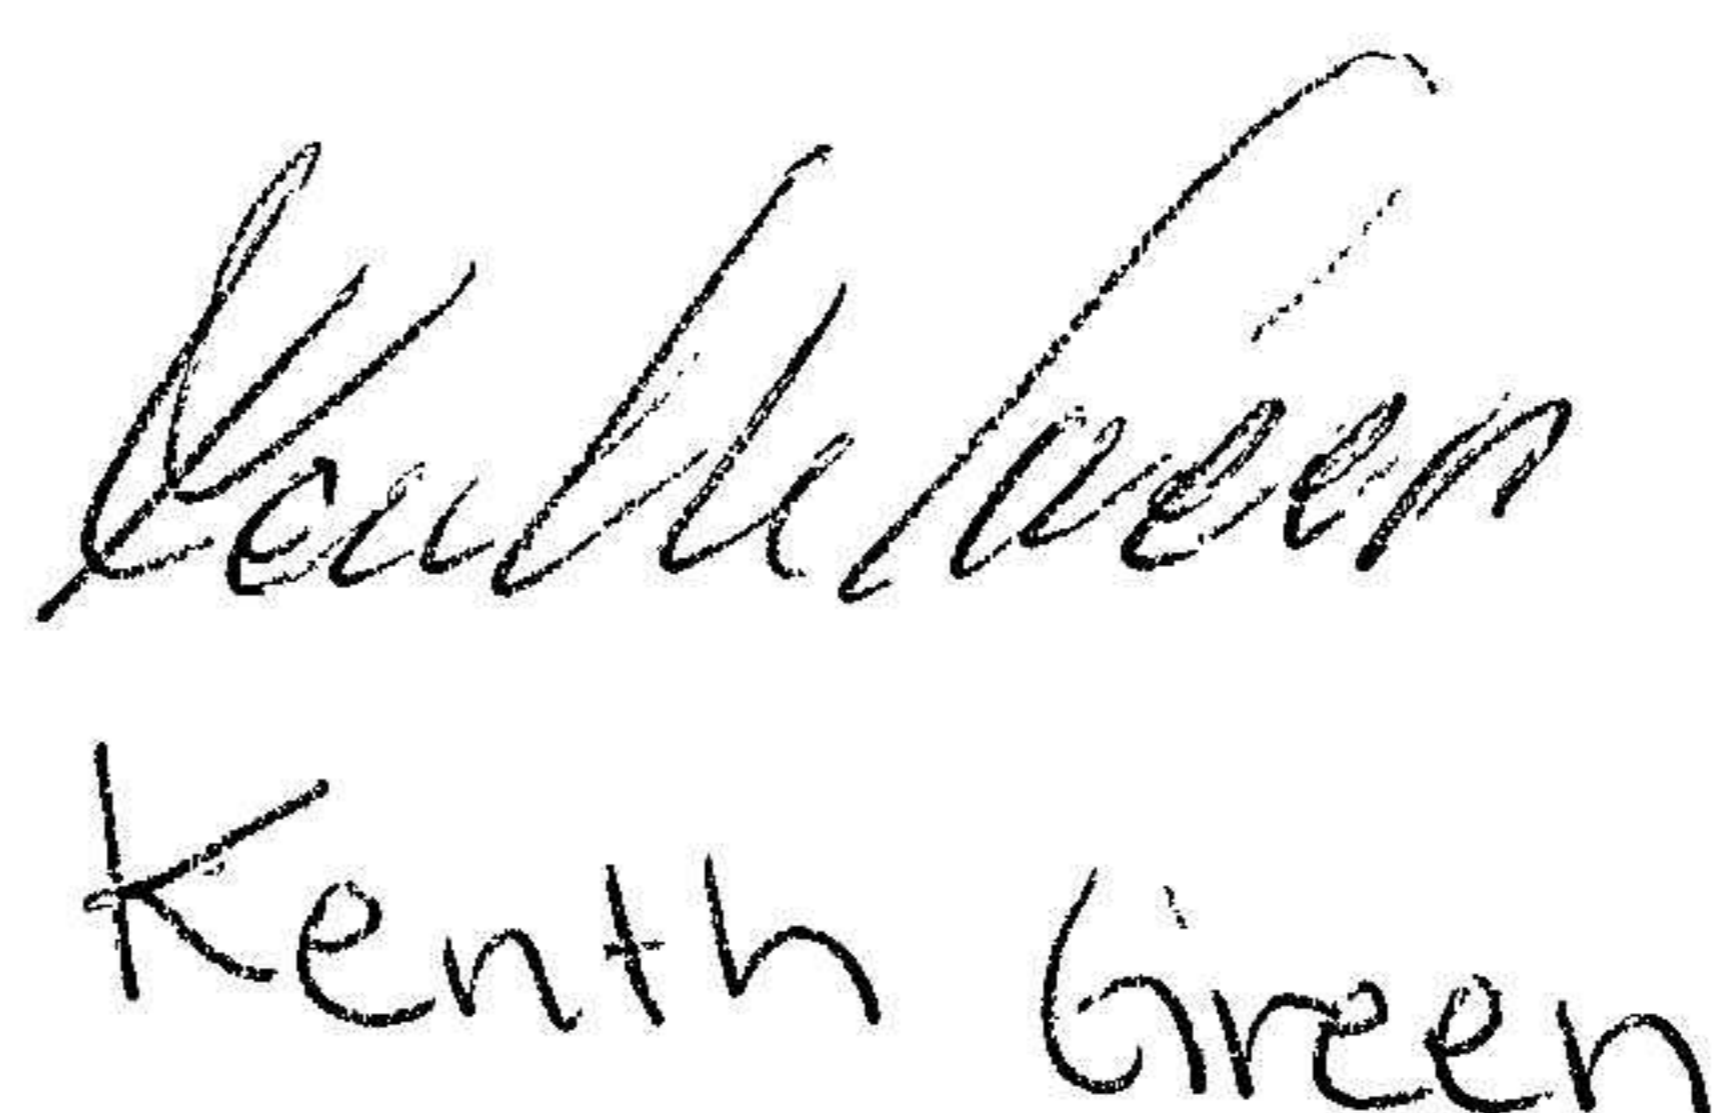 Kenth Green
Kenth Green